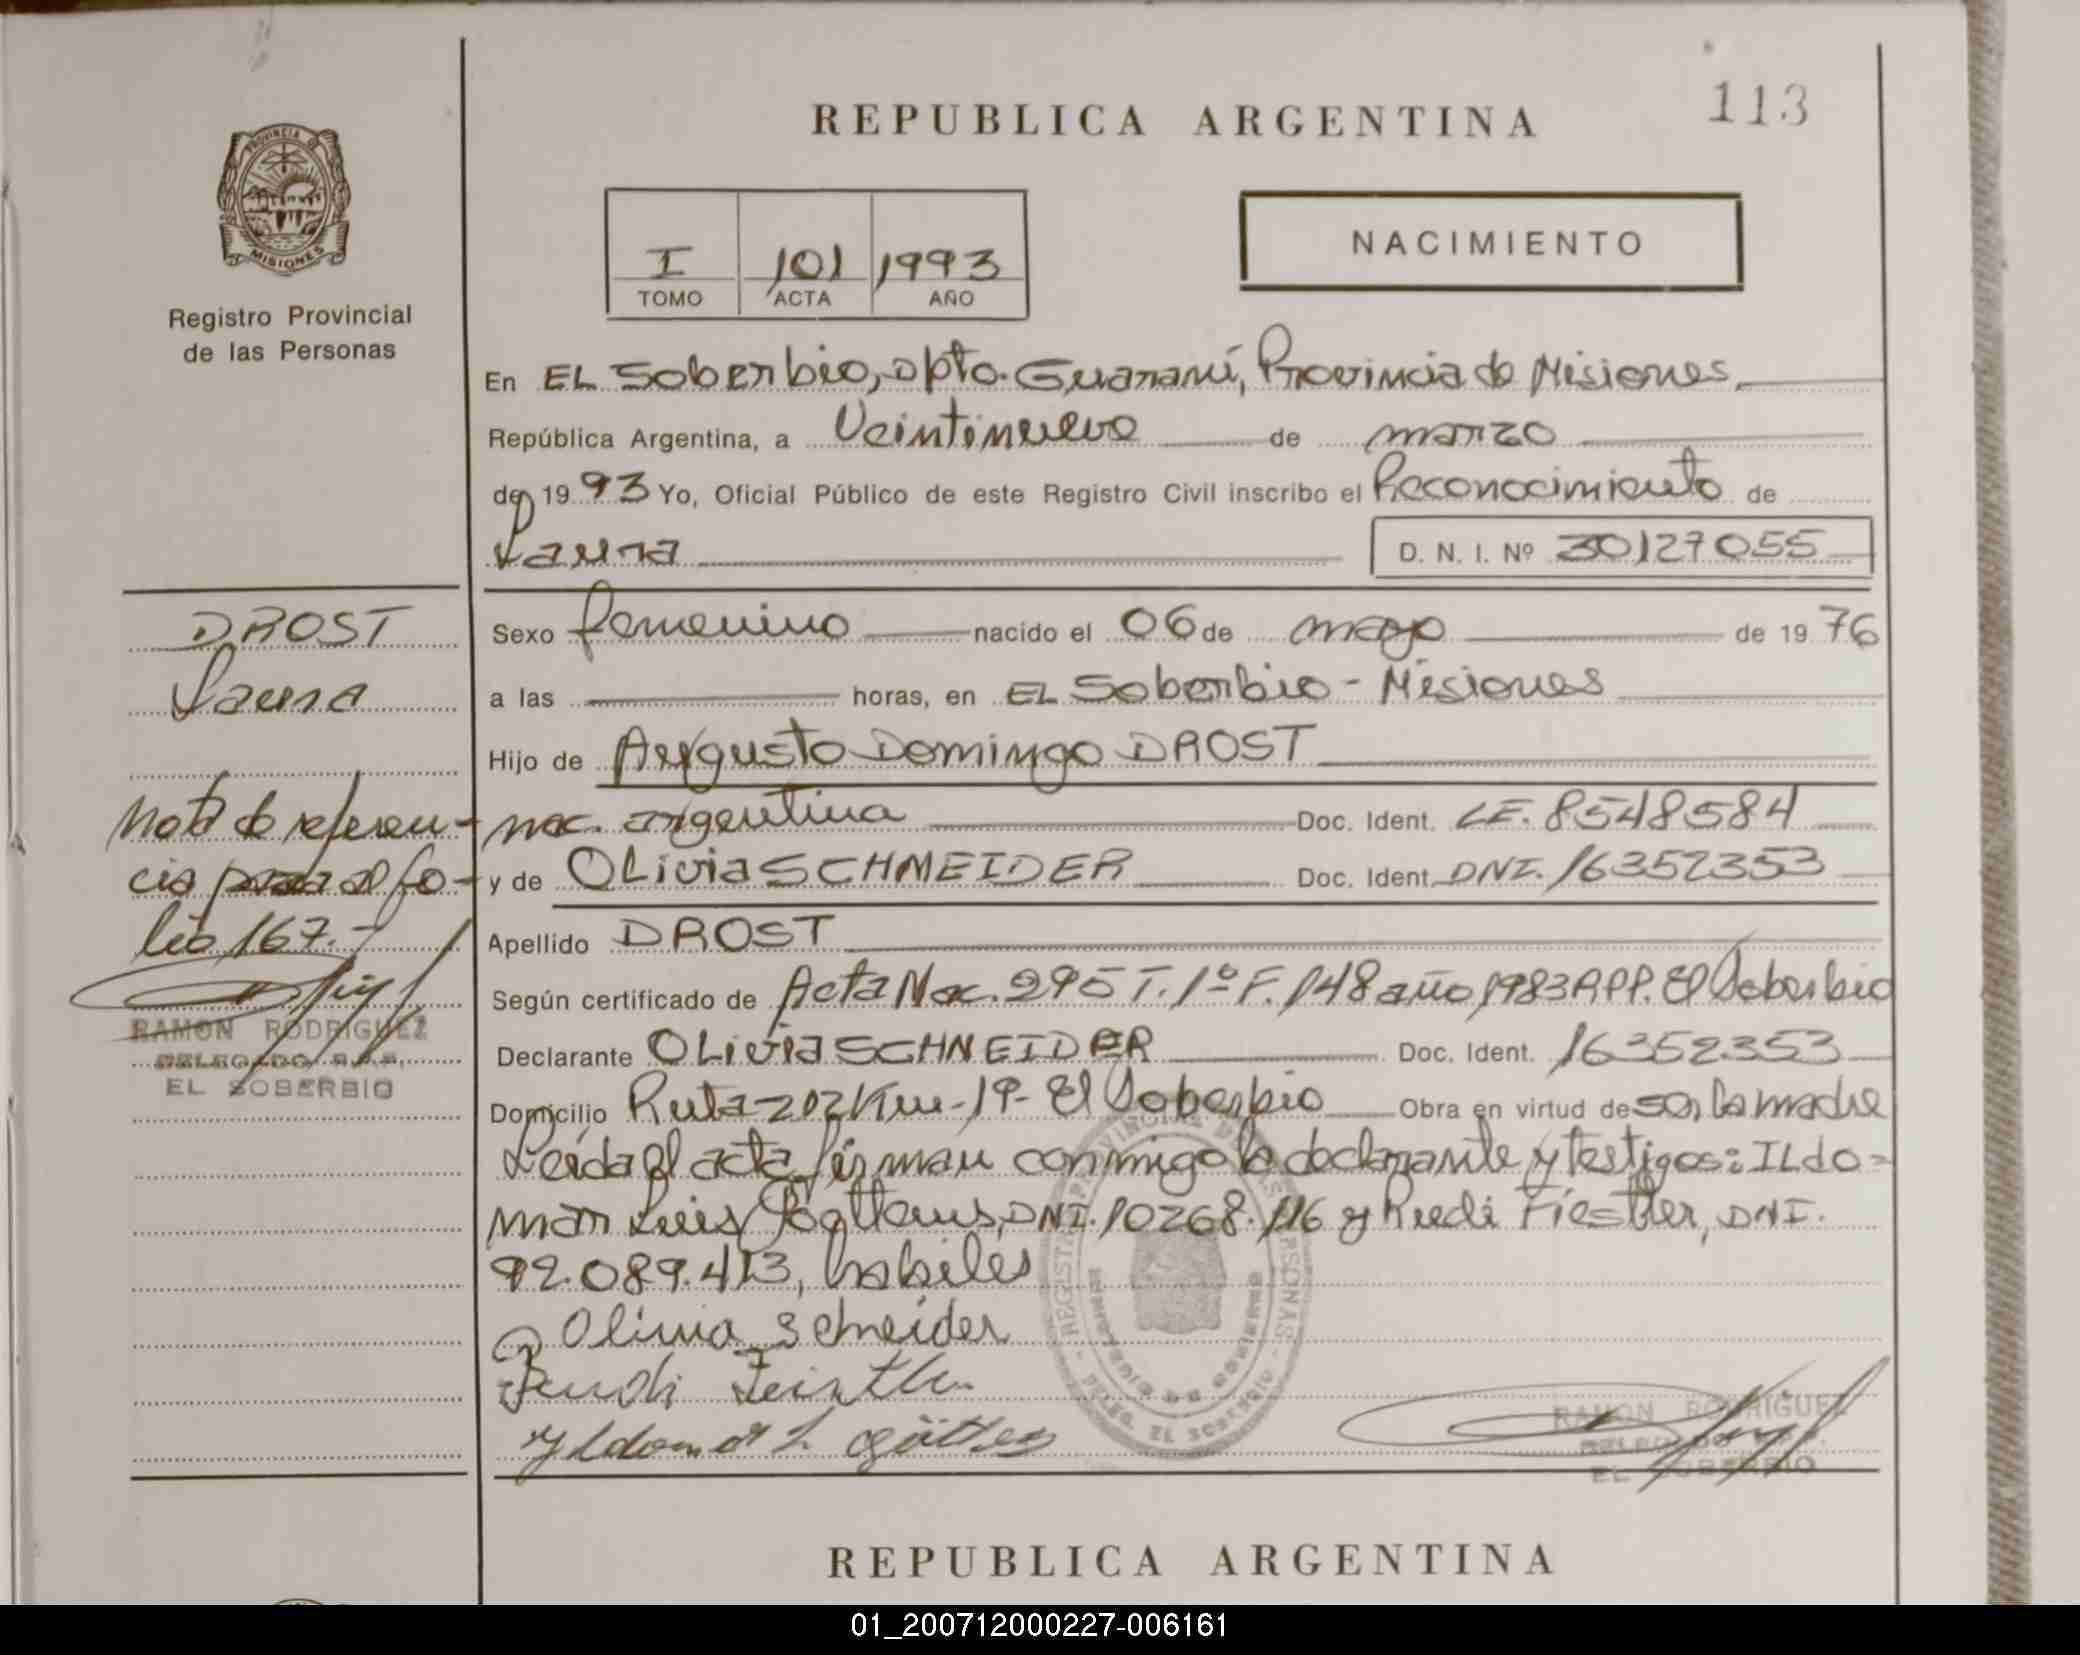 REPUBLICA ARGENTINA
113
PROVINCIA
MISIONES
Registro Provincial
de las Personas
I 101 1993
TOMO ACTA AÑO
NACIMIENTO
En EL Soberbio, Dpto. Guaraní, Provincia de Misiones.
República Argentina, a Veintinueve de marzo
de 1993 Yo, Oficial Público de este Registro Civil inscribo el Reconocimiento de
Laura D. N. I. Nº 30127055
DROST
Laura
Nota de referen-
cia para al fo-
lio 167.-
RAMON RODRIGUEZ
DELEGADO R.P.P.
EL SOBERBIO
Sexo femenino nacido el 06 de mayo de 1976
a las horas, en EL Soberbio - Misiones
Hijo de Augusto Domingo DROST
nac. argentina Doc. Ident. LE. 8548584
y de OLivia SCHNEIDER Doc. Ident. DNI. 16352353
Apellido DROST
Según certificado de Acta Nac. 295 T. 1º F. 148 año 1983 RPP. El Soberbio
Declarante OLivia SCHNEIDER Doc. Ident. 16352353
Domicilio Ruta 202 Km - 19 - El Soberbio Obra en virtud de ser la madre
Leida el acta firman conmigo la declarante y testigos: ILdo=
mar Luis DNI. 10268.116 y Ruedi DNI.
92.089.413, habiles
Olivia Schneider
RAMON RODRIGUEZ
EL SOBERBIO
REPUBLICA ARGENTINA
01_200712000227-006161